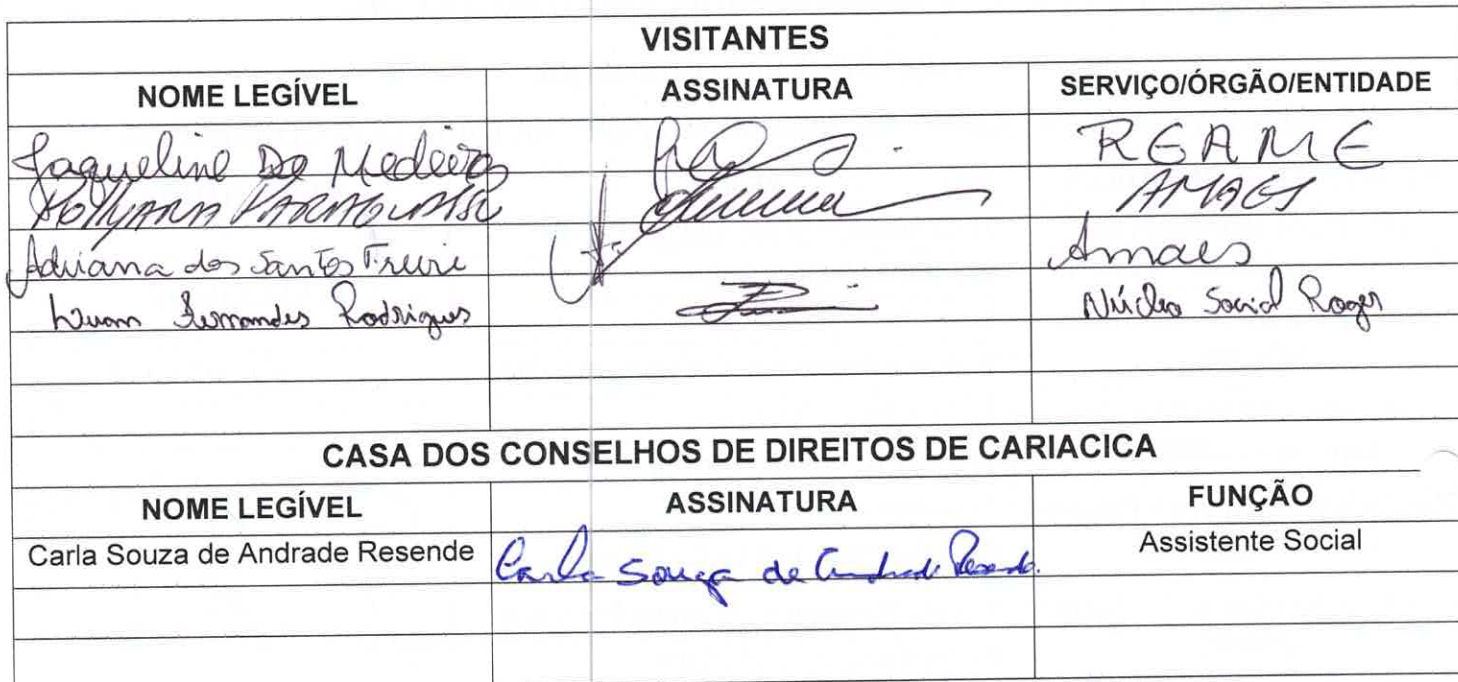 VISITANTES
NOME LEGÍVEL ASSINATURA SERVIÇO/ÓRGÃO/ENTIDADE
Jaqueline De Medeiros REAME
Pollyana AMAES
Adriana dos Santos Freire Amaes
Luam Fernandes Rodrigues Núcleo Social Roger
CASA DOS CONSELHOS DE DIREITOS DE CARIACICA
NOME LEGÍVEL ASSINATURA FUNÇÃO
Carla Souza de Andrade Resende Carla Souza de Andrade Resende. Assistente Social